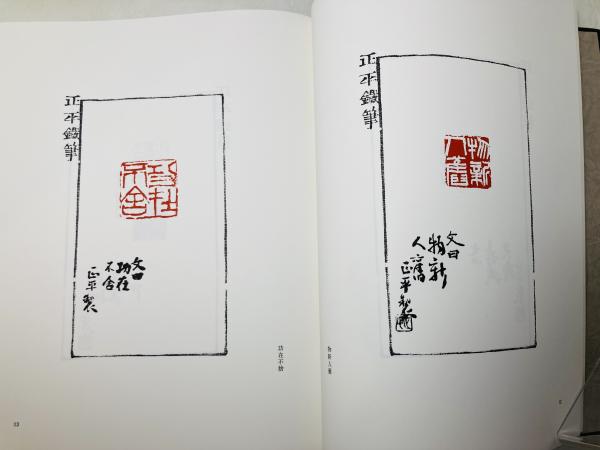 正平鐵筆
物新
人舊
文曰
物新
人舊
正平製
物新人舊
正平鐵筆
功在
不舍
文曰
功在
不舍
正平製
功在不捨